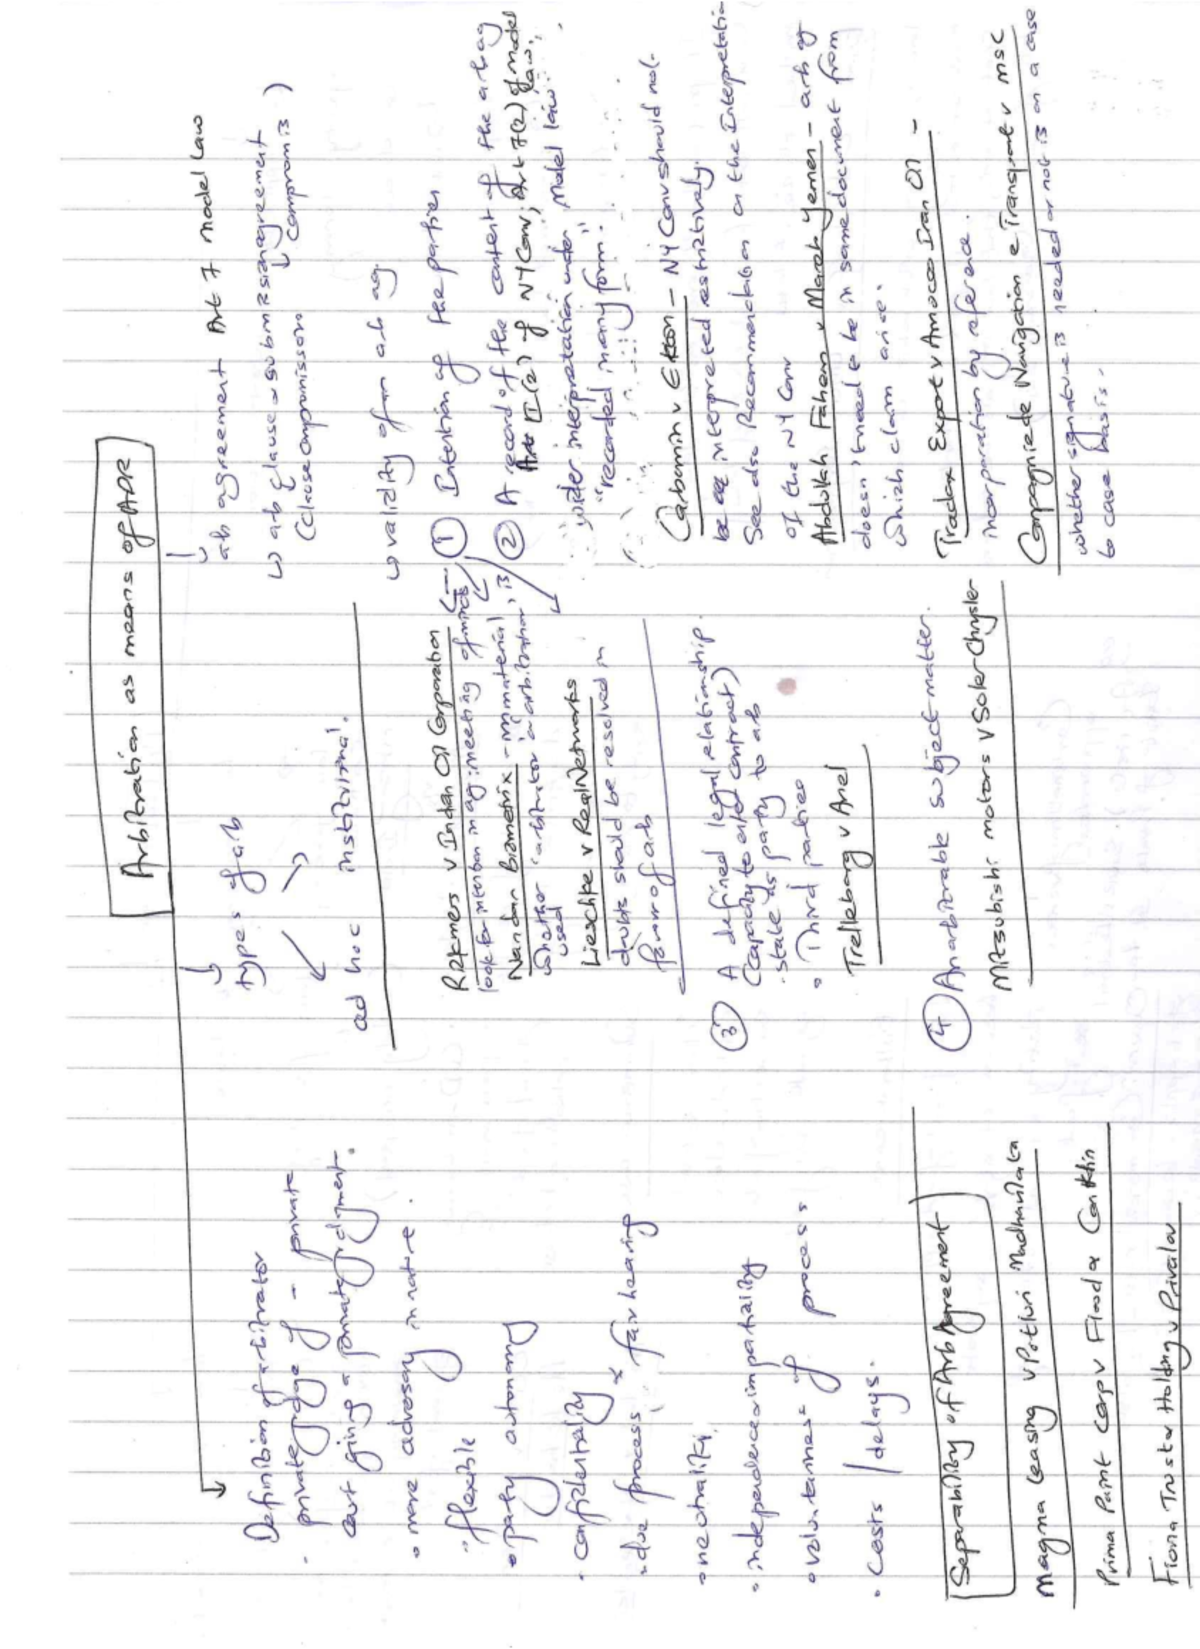 Arbitration as means of ADR
Definition of arbitrator
- private judge of - private
court giving a private judgment.
• more adversary in nature.
• flexible
• party autonomy
• confidentiality
• due process & fair hearing
• neutrality
• independence & impartiality
• voluntariness of process
• costs / delays.
Separability of Arb Agreement
Magma Leasing v Potluri Madhavilata
Prima Paint Corp v Flood & Conklin
Fiona Trust & Holding v Privalov
types of arb
ad hoc institutional.
Rickmers v Indian Oil Corporation
look for intention in ag: meeting of minds
Nandan Biometrix - immaterial
whether 'arbitrator' or 'arbitration' is
used
Lieschke v RealNetworks
doubts should be resolved in
favour of arb
③ A defined legal relationship.
(capacity to enter contract)
• state as party to arb
• Third parties
Trelleborg v Anel
④ An arbitrable subject-matter.
Mitsubishi motors v Soler Chrysler
arb agreement Art 7 model law
↳ arb clause & submission agreement
(clause compromissoire compromis)
↳ validity of an arb ag.
① Intention of the parties
② A record of the content of the arb ag
Art II(2) of NY Conv; Art 7(2) of model law;
wider interpretation under Model law:
"recorded in any form."
Carbomin v Ekton - NY Conv should not
be interpreted restrictively.
See also Recommendation on the Interpretation
of the NY Conv
Abdullah Fahem v Mareb Yemen - arb ag
doesn't need to be in same document from
which claim arise.
Tradax Export v Amoco Iran Oil -
incorporation by reference.
Compagnie de Navigation e Transport v MSC
whether signature is needed or not is on a case
to case basis.